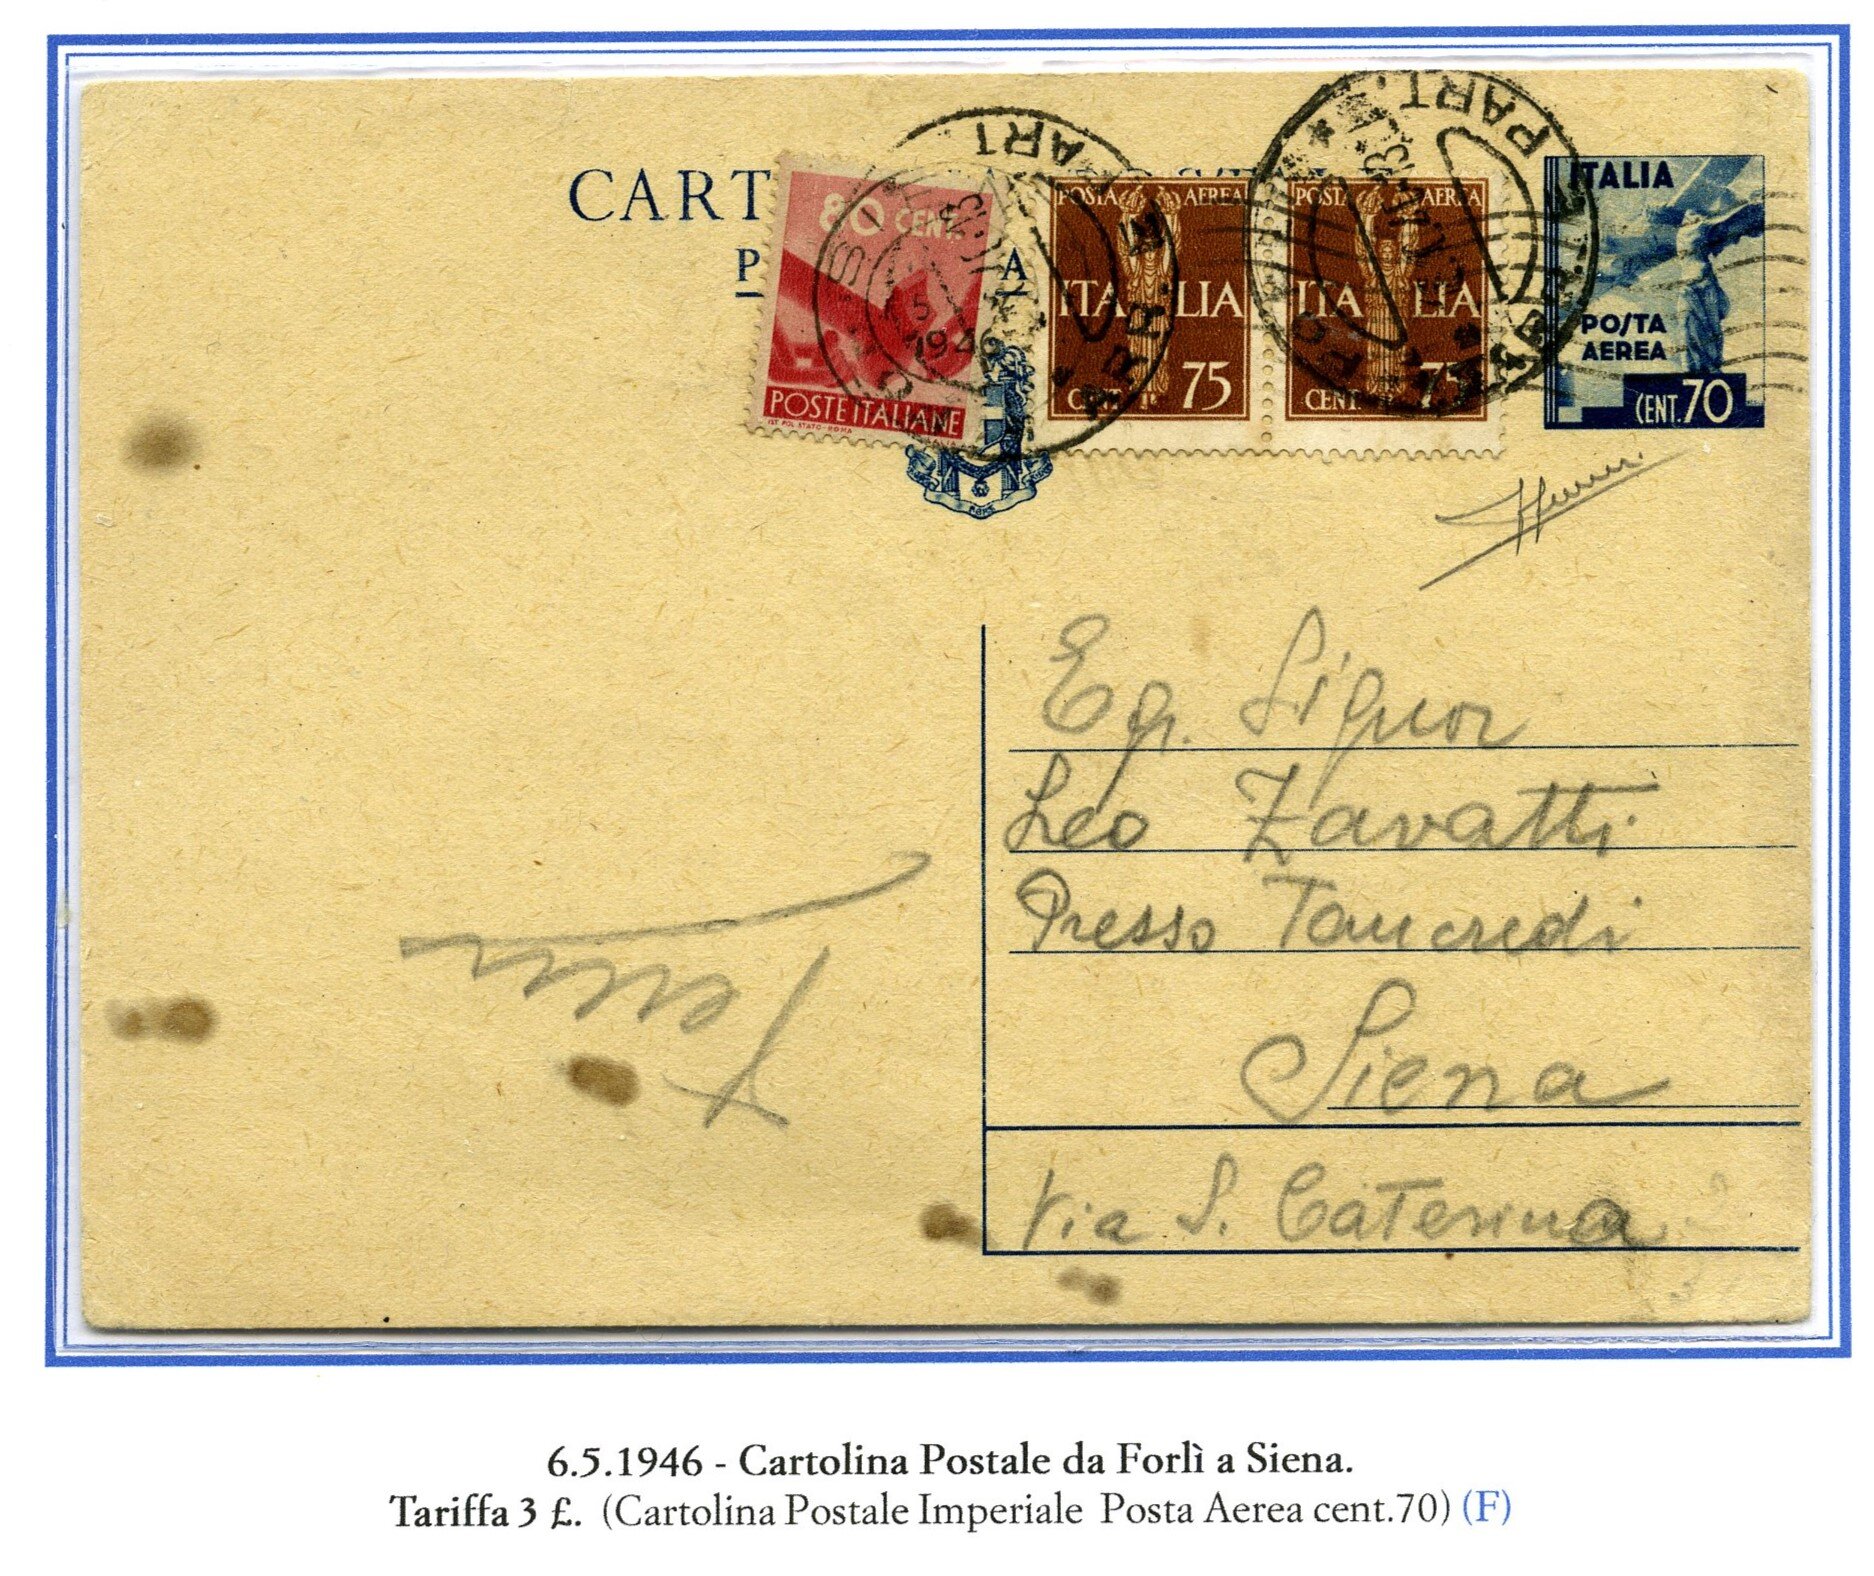 CART
P A
80 CENT.
POSTE ITALIANE
IST. POL. STATO - ROMA
POSTA AEREA
ITALIA
CENT. 75
POSTA AEREA
ITALIA
CENT. 75
ITALIA
POSTA
AEREA
CENT. 70
PART.
ARR. E
PART.
1946
Eg. Signor
Leo Zavatti
Presso Tancredi
Siena
Via S. Caterina
6.5.1946 - Cartolina Postale da Forlì a Siena.
Tariffa 3 £. (Cartolina Postale Imperiale Posta Aerea cent.70) (F)